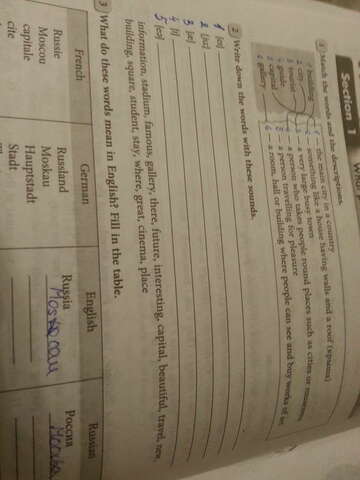 Section 1
1 Match the words and the descriptions.
1 building
2 city
3 tourist
4 guide
5 capital
6 gallery
the main city in a country
something like a house having walls and a roof (крыша)
a very large busy town
a person who takes people round places such as cities or museums
a person travelling for pleasure
a room, hall or building where people can see and buy works of art
2 Write down the words with these sounds.
1
2
3 [æ]
4 [i]
5 [eə]
information, stadium, famous, gallery, there, future, interesting, capital, beautiful, travel, new,
building, square, student, stay, where, great, cinema, place
3 What do these words mean in English? Fill in the table.
French German English Russian
Russie Russland Russia Россия
Moscou Moskau
capitale Hauptstadt
cite Stadt